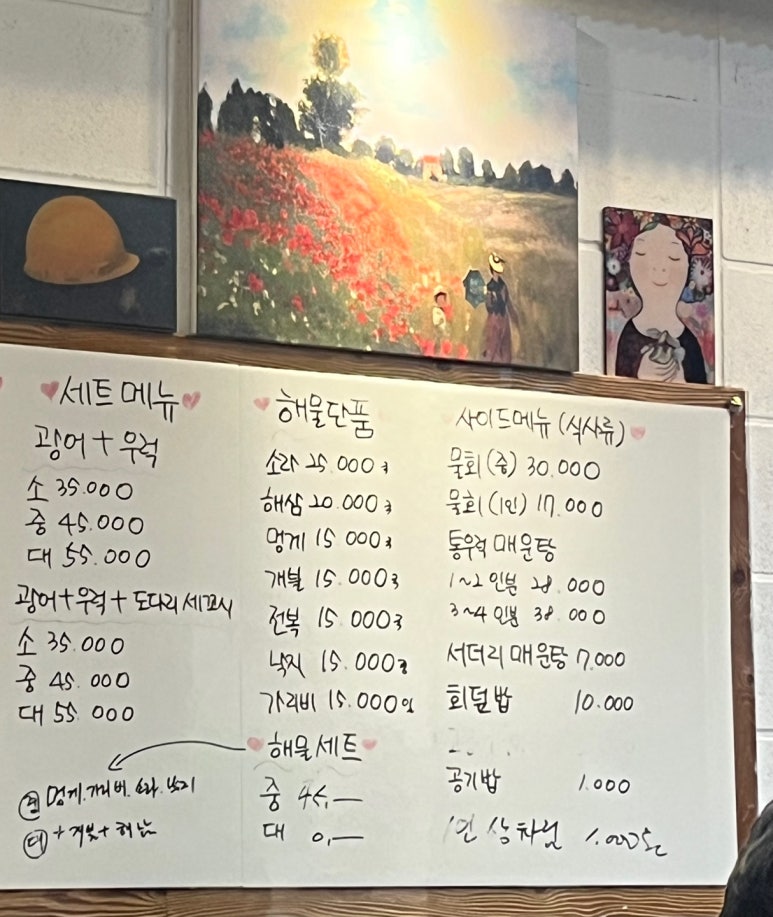 세트메뉴
광어+우럭
소 35.000
중 45.000
대 55.000
광어+우럭+도다리세꼬시
소 35.000
중 45.000
대 55.000
멍게.가리비.소라.낙지
대 +전복+해삼
해물단품
소라 25.000
해삼 20.000
멍게 15 000
개불 15.000
전복 15.000
낙지 15.000
가리비 15.000
해물세트
중 45,—
대
사이드메뉴 (식사류)
물회(중) 30.000
물회(1인) 17.000
통우럭 매운탕
1~2인분 28.000
3~4인분 38.000
서더리매운탕 7.000
회덮밥 10.000
공기밥 1.000
상차림 1.000